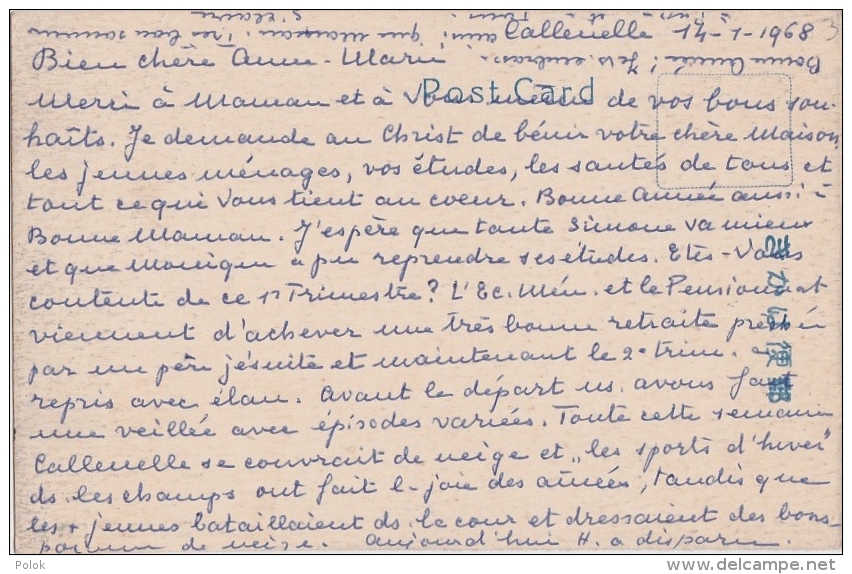 Callenelle 14-1-1968
Bien chère Anne-Marie
Post Card
Merci à Maman et à Vous même de vos bons sou-
haits. Je demande au Christ de bénir votre chère Maison,
les jeunes ménages, vos études, les santés de tous et
tout ce qui Vous tient au coeur. Bonne Année aussi à
Bonne Maman. J'espère que tante Simone va mieux
et que Monique a pu reprendre ses études. Etes-Vous
contente de ce 1r Trimestre? L'Ec. Mén. et le Pensionnat
viennent d'achever une très bonne retraite prêchée
par un père jésuite et maintenant le 2e trim. a
repris avec élan. Avant le départ ns. avons fait
une veillée avec épisodes variées. Toute cette semaine
Callenelle se couvrait de neige et „les sports d'hiver"
ds. les champs ont fait la joie des aînées, tandis que
les + jeunes bataillaient ds. la cour et dressaient des bons-
hommes de neige. Aujourd'hui tt. a disparu.
Bonne Année! Je vs. embrasse ainsi que Maman. Très bon
Delcampe.net
Polok